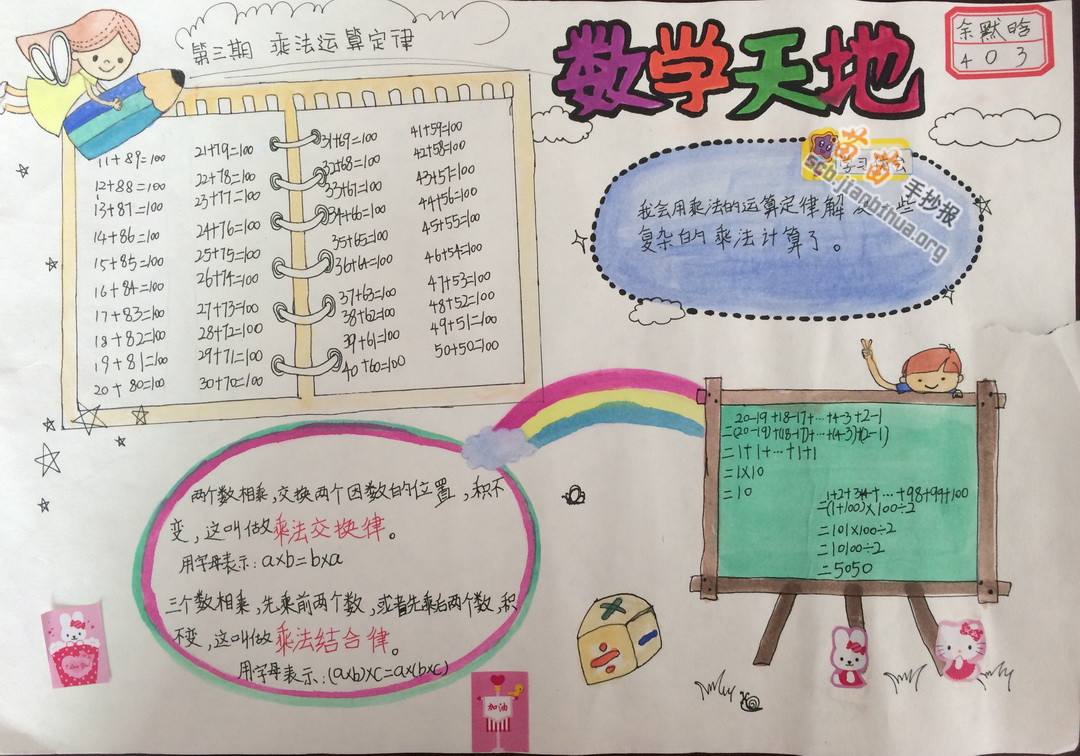 第三期 乘法运算定律
数学天地
余默晗
403
11+89=100
12+88=100
13+87=100
14+86=100
15+85=100
16+84=100
17+83=100
18+82=100
19+81=100
20+80=100
21+79=100
22+78=100
23+77=100
24+76=100
25+75=100
26+74=100
27+73=100
28+72=100
29+71=100
30+70=100
31+69=100
32+68=100
33+67=100
34+66=100
35+65=100
36+64=100
37+63=100
38+62=100
39+61=100
40+60=100
41+59=100
42+58=100
43+57=100
44+56=100
45+55=100
46+54=100
47+53=100
48+52=100
49+51=100
50+50=100
苗苗手抄报
scb.jianbihua.org
学习
我会用乘法的运算定律解 些
复杂的乘法计算了。
两个数相乘,交换两个因数的位置,积不
变,这叫做乘法交换律。
用字母表示:a×b=b×a
三个数相乘,先乘前两个数,或者先乘后两个数,积
不变,这叫做乘法结合律。
用字母表示:(a×b)×c=a×(b×c)
20-19+18-17+…+4-3+2-1
=(20-19)+(18-17)+…+(4-3)+(2-1)
=1+1+…+1+1
=1×10
=10
1+2+3+…+98+99+100
=(1+100)×100÷2
=101×100÷2
=10100÷2
=5050
I Love You!
加油